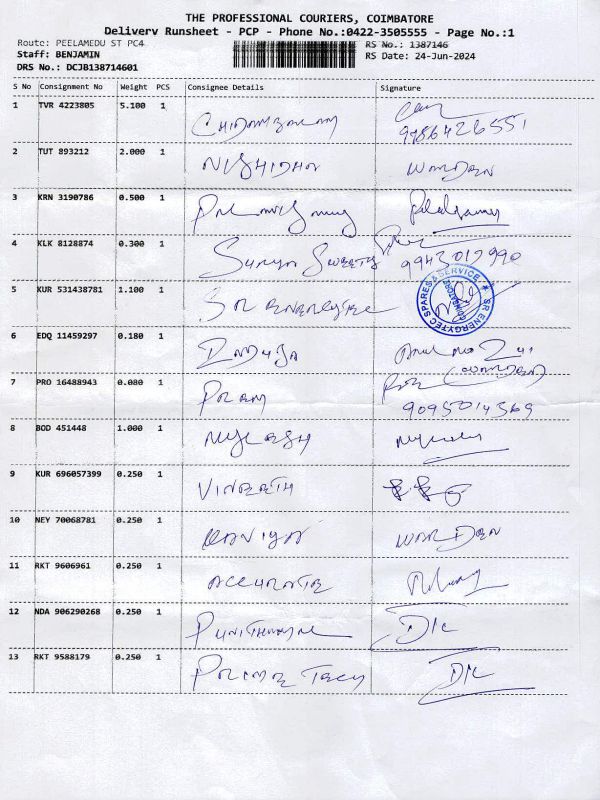 THE PROFESSIONAL COURIERS, COIMBATORE
Delivery Runsheet - PCP - Phone No.:0422-3505555 - Page No.:1
Route: PEELAMEDU ST PC4 RS No.: 1387146
Staff: BENJAMIN RS Date: 24-Jun-2024
DRS No.: DCJB138714601
S No Consignment No Weight PCS Consignee Details Signature
1 TVR 4223805 5.100 1 CHIDAMBARAM
9486426551
2 TUT 893212 2.000 1 NISHIDHA WARDEN
3 KRN 3190786 0.500 1
4 KLK 8128874 0.300 1 Surya Sweets 9943012990
5 KUR 531438781 1.100 1 SR ENERGYTEC
SR ENERGYTEC SPARES & SERVICE
COIMBATORE
6 EDQ 11459297 0.180 1
WARDEN
7 PRO 16488943 0.080 1
9095014569
8 BOD 451448 1.000 1 MYLEASH
9 KUR 696057399 0.250 1 VINEETH
10 NEY 70068781 0.250 1 KAVIYA WARDEN
11 RKT 9606961 0.250 1 ACCURATE
12 NDA 906290268 0.250 1
13 RKT 9588179 0.250 1 PRIME TECH